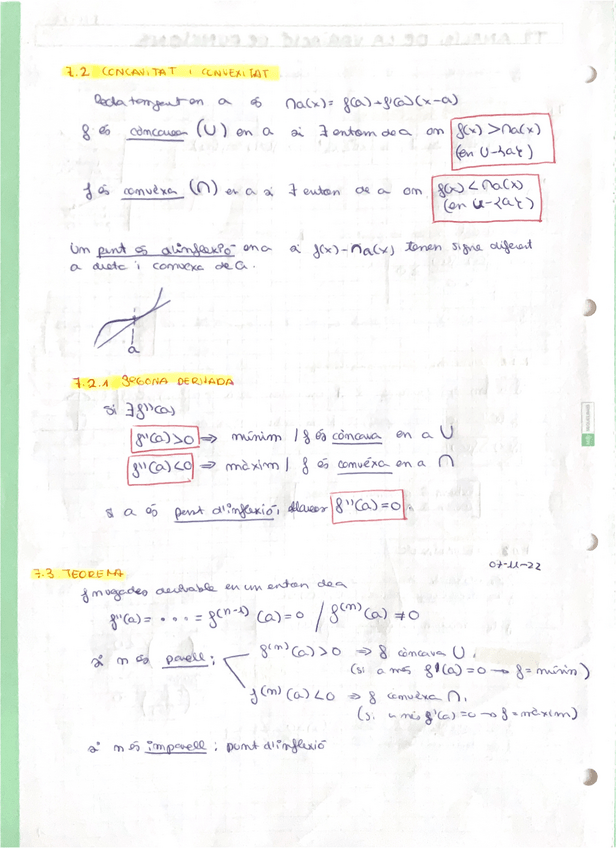 7.2 CONCAVITAT I CONVEXITAT
Recta tangent en a és ra(x) = f(a) + f'(a)(x-a)
f és còncava (∪) en a si ∃ entorn de a on f(x) > ra(x)
(en U-{a})
f és convèxa (∩) en a si ∃ entorn de a on f(x) < ra(x)
(en U-{a})
Un punt és d'inflexió en a si f(x) - ra(x) tenen signe diferent
a dreta i de a.
a
7.2.1 SEGONA DERIVADA
si ∃ f''(a)
f''(a)>0 ⇒ mínim / f és còncava en a ∪
f''(a)<0 ⇒ màxim / f és convéxa en a ∩
si a és punt d'inflexió, f''(a)=0.
07-11-22
7.3 TEOREMA
f n vegades derivable en un entorn de a
f''(a) = ... = f(n-1) (a) = 0 / f(n) (a) ≠ 0
si n és parell: f(n)(a) > 0 ⇒ f còncava ∪.
(si a més f'(a) = 0 → f = mínim)
f(n)(a) < 0 ⇒ f convéxa ∩.
(si a més f'(a) = 0 → f = màxim)
si n és imparell: punt d'inflexió